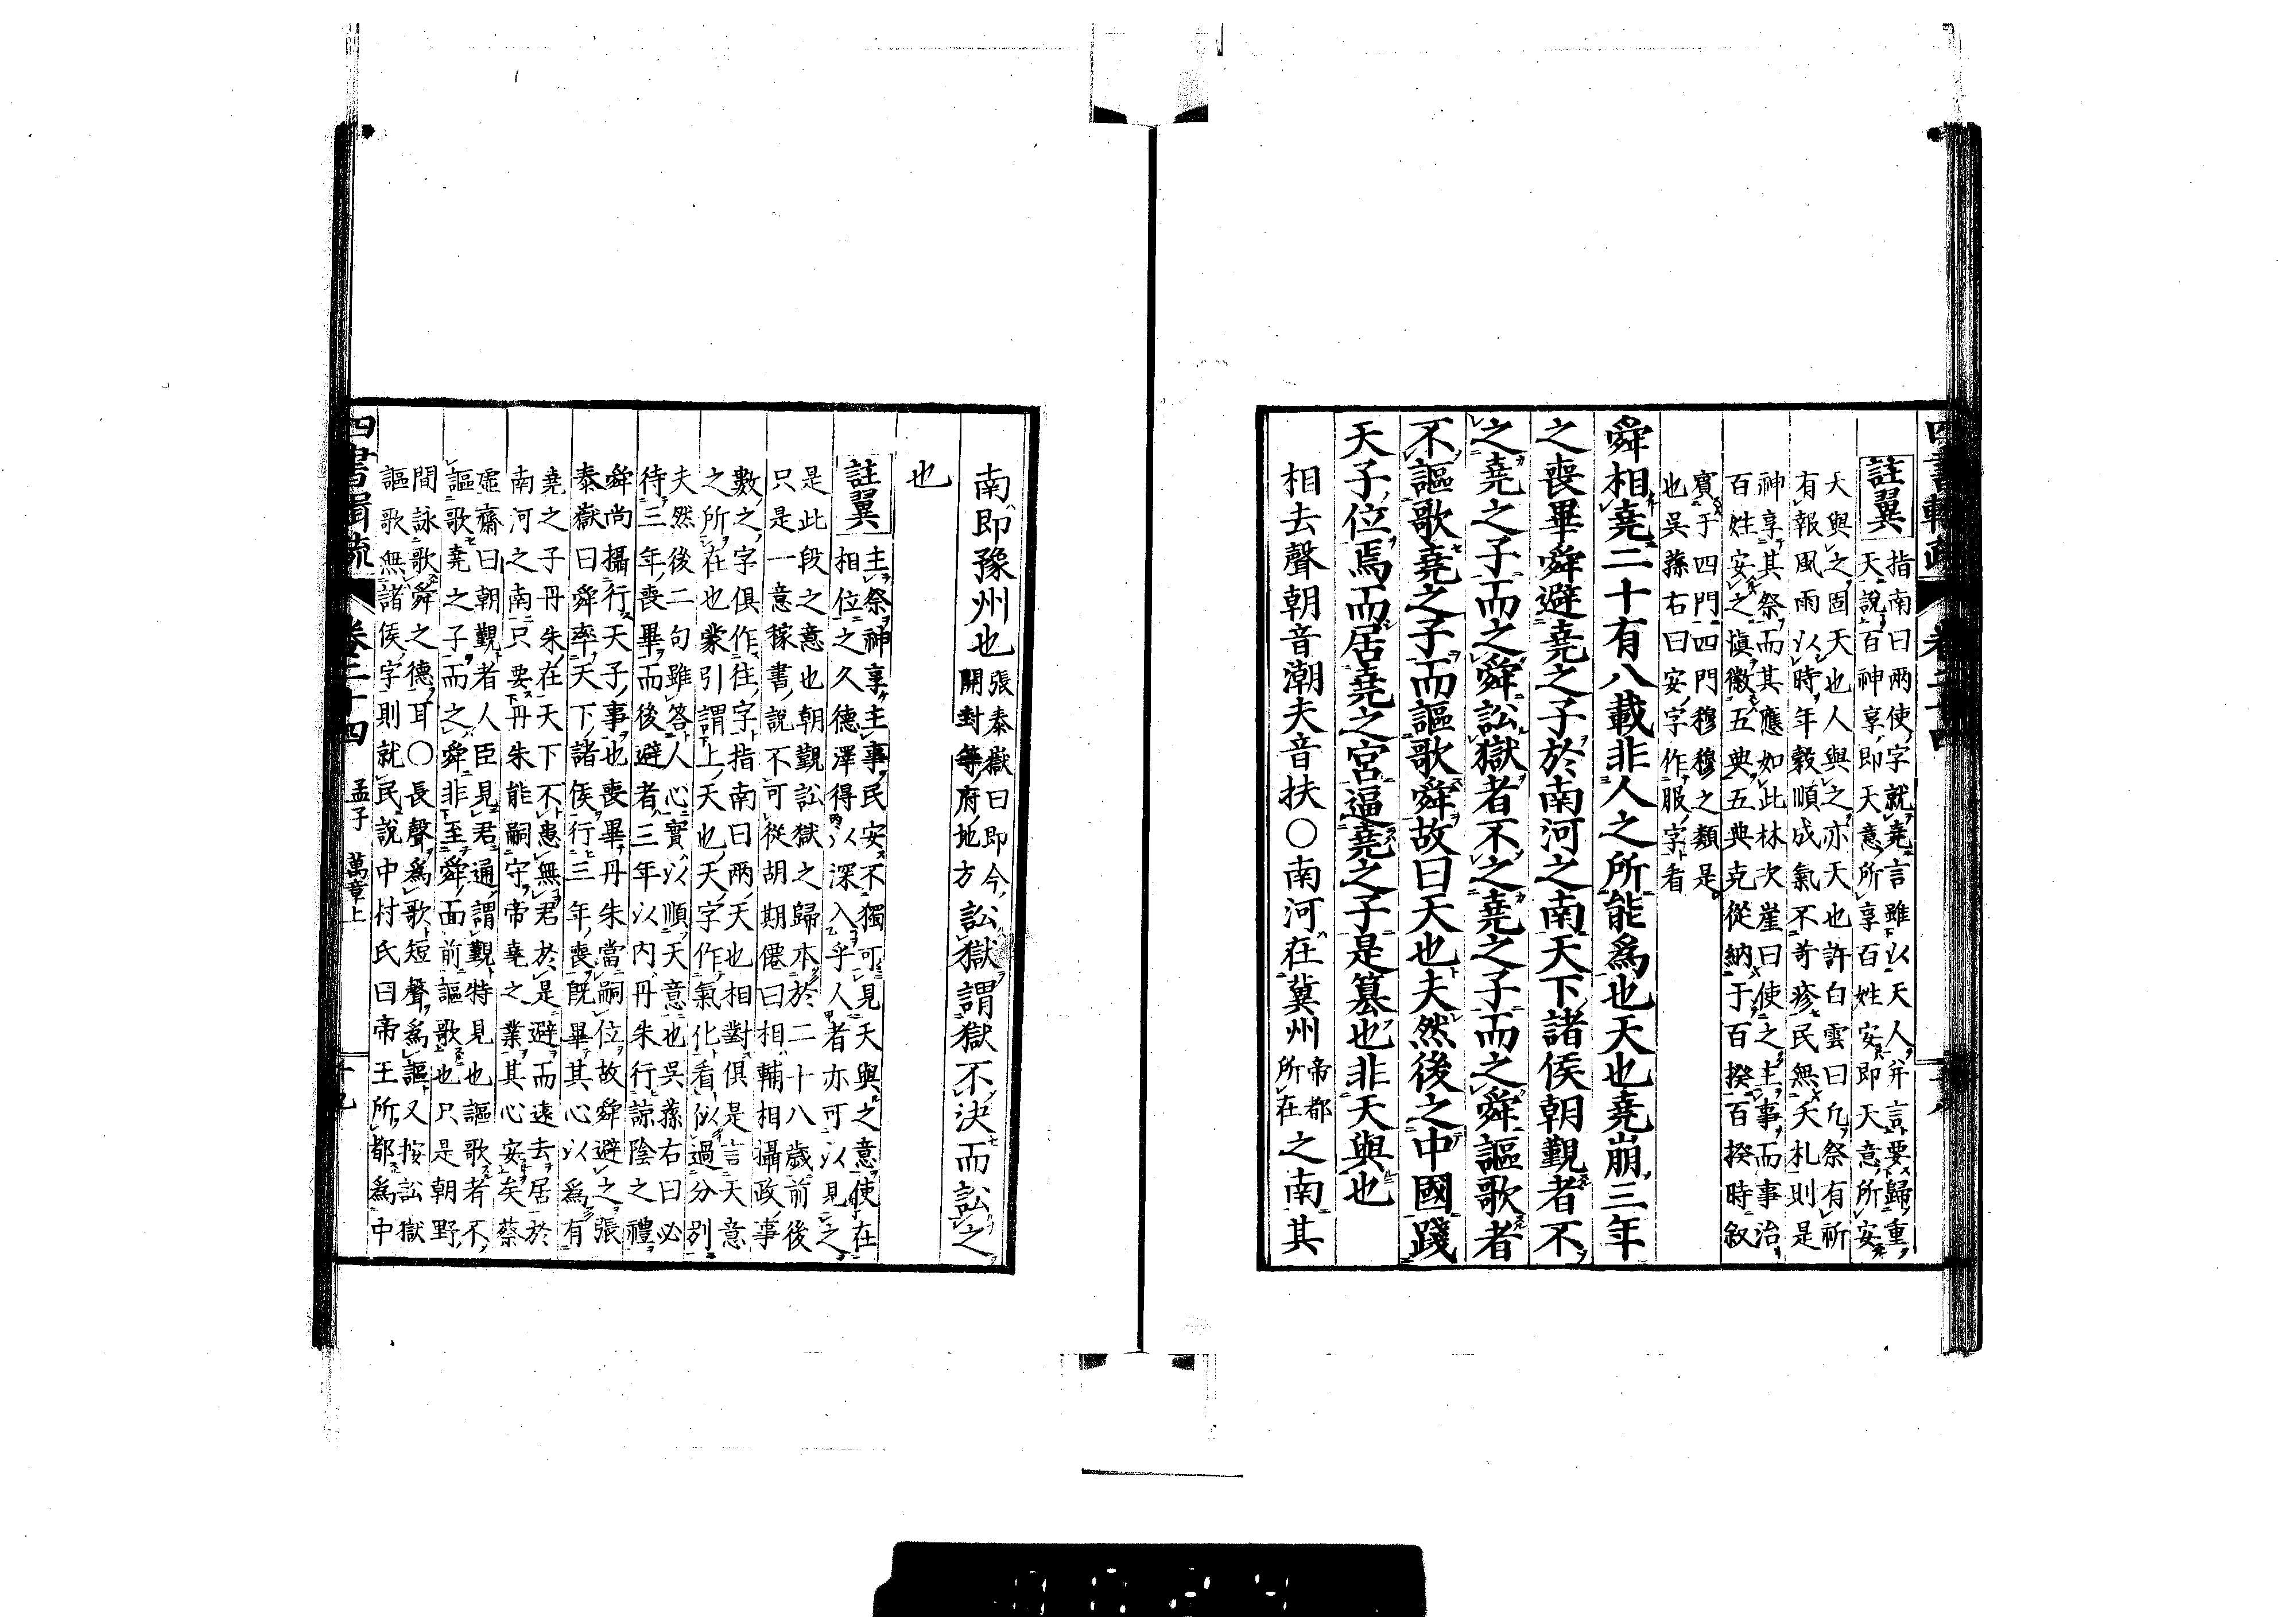 四書輯疏 卷二十四
註翼
指南曰兩使字就堯言雖以天人并言要歸重
天說百神享即天意所享百姓安即天意所安
天與之固天也人與之亦天也許白雲曰凡祭有祈
有報風雨以時年穀順成氣不奇疹民無夭札則是
神享其祭而其應如此林次崖曰使之主事而事治
百姓安之愼徽五典五典克從納于百揆百揆時敘
賓于四門四門穆穆之類是
也吳蓀右曰安字作服字看
舜相堯二十有八載非人之所能爲也天也堯崩三年
之喪畢舜避堯之子於南河之南天下諸侯朝覲者不
之堯之子而之舜訟獄者不之堯之子而之舜謳歌者
不謳歌堯之子而謳歌舜故曰天也夫然後之中國踐
天子位焉而居堯之宮逼堯之子是簒也非天與也
相去聲朝音潮夫音扶○南河在冀州帝都所在之南其
南即豫州也張泰嶽曰即今開封等府地方訟獄謂獄不決而訟之
也
註翼
主祭神享主事民安不獨可見天與之意使在
相位之久德澤得以深入乎人者亦可以見之
是此段之意也朝覲訟獄之歸本於二十八歲前後
只是一意稼書說不可從胡期僊曰相輔相攝政事
數之字俱作往字指南曰兩天也相對俱是言天意
之所在也蒙引謂上天也天字作氣化看似過分別
夫然後二句雖答人心實以順天意也吳蓀右曰必
待三年喪畢而後避者三年以內丹朱行諒陰之禮
舜尚攝行天子事也喪畢丹朱當嗣位故舜避之張
泰嶽曰舜率天下諸侯行三年喪旣畢其心以爲有
堯之子丹朱在天下不患無君於是避而遠去居於
南河之南只要丹朱能嗣守帝堯之業其心安矣蔡
虛齋曰朝覲者人臣見君通謂覲特見也謳歌者不
謳歌堯之子而之舜非至舜面前謳歌也只是朝野
間詠歌舜之德耳○長聲爲歌短聲爲謳又按訟獄
謳歌無諸侯字則就民說中村氏曰帝王所都爲中
四書輯疏 卷二十四 孟子 萬章上 十九